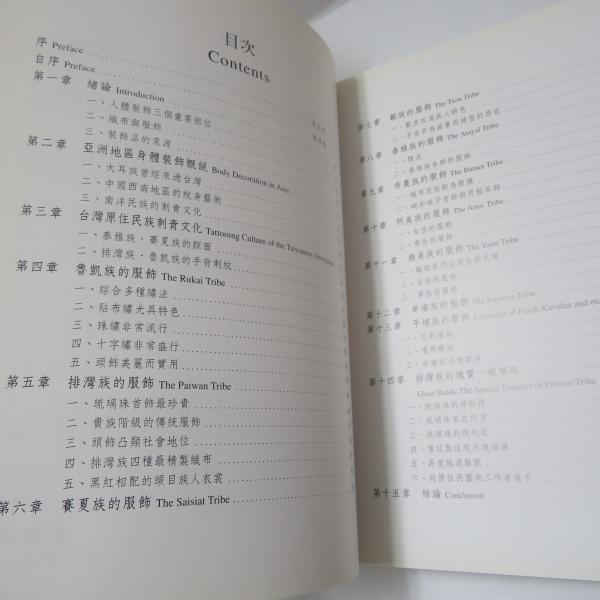 目次
Contents
序 Preface
自序 Preface
第一章 緒論 Introduction
一、人體裝飾三個重要部位
二、織布與服飾
三、裝飾品的來源
第二章 亞洲地區身體裝飾概說 Body Decoration in Asia
一、大耳族曾經來過台灣
二、中國西南地區的紋身藝術
三、南洋民族的刺青文化
第三章 台灣原住民族刺青文化 Tattooing Culture of the Taiwanese Aborigines
一、泰雅族、賽夏族的黥面
二、排灣族、魯凱族的手背刺紋
第四章 魯凱族的服飾 The Rukai Tribe
一、綜合多種繡法
二、貼布繡尤具特色
三、珠繡非常流行
四、十字繡非常盛行
五、頭飾美麗而實用
第五章 排灣族的服飾 The Paiwan Tribe
一、琉璃珠首飾最珍貴
二、貴族階級的傳統服飾
三、頭飾凸顯社會地位
四、排灣族四種最精製織布
五、黑紅相配的頭目族人衣裳
第六章 賽夏族的服飾 The Saisiat Tribe
第七章 鄒族的服飾 The Tsou Tribe
第八章 泰雅族的服飾 The Atayal Tribe
一、概況
二、泰雅族各群的服飾
第九章 布農族的服飾 The Bunun Tribe
第十章 阿美族的服飾 The Amis Tribe
一、女性的服飾
二、男性的服飾
第十一章 雅美族的服飾 The Yami Tribe
二、女性的服飾
三、男性的服飾
第十二章 卑南族的服飾 The Puyuma Tribe
第十三章 平埔族的服飾 Costumes of Pazeh Kavalan and etc
一、巴則海族
二、噶瑪蘭族
三、中南部平埔群族
第十四章 排灣族的瑰寶—琉璃珠
Glass Beads-The Special Treasure of Paiwan Tribe
一、琉璃珠的神秘性
二、琉璃珠來自何方
三、琉璃珠的現代化
四、嘗試製造現代琉璃珠
五、再度地遭難關
六、對原住民藝術工作者進言
第十五章 結論 Conclusion